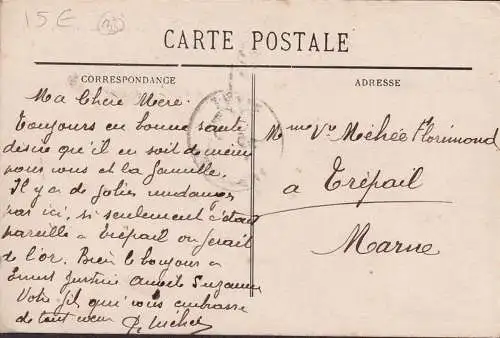 15 €
CARTE POSTALE
CORRESPONDANCE
ADRESSE
Ma Chère Mère.
Toujours en bonne santé
désire qu'il en soit de même
pour vous et la famille.
Il y a de jolies vendanges
par ici, si seulement c'était
pareille à Trépail on ferait
de l'or. Bien le bonjour à
Ernest Justine Suzanne
Votre fils qui vous embrasse
de tout cœur
Mme Vve Méhée Florimond
à Trépail
Marne